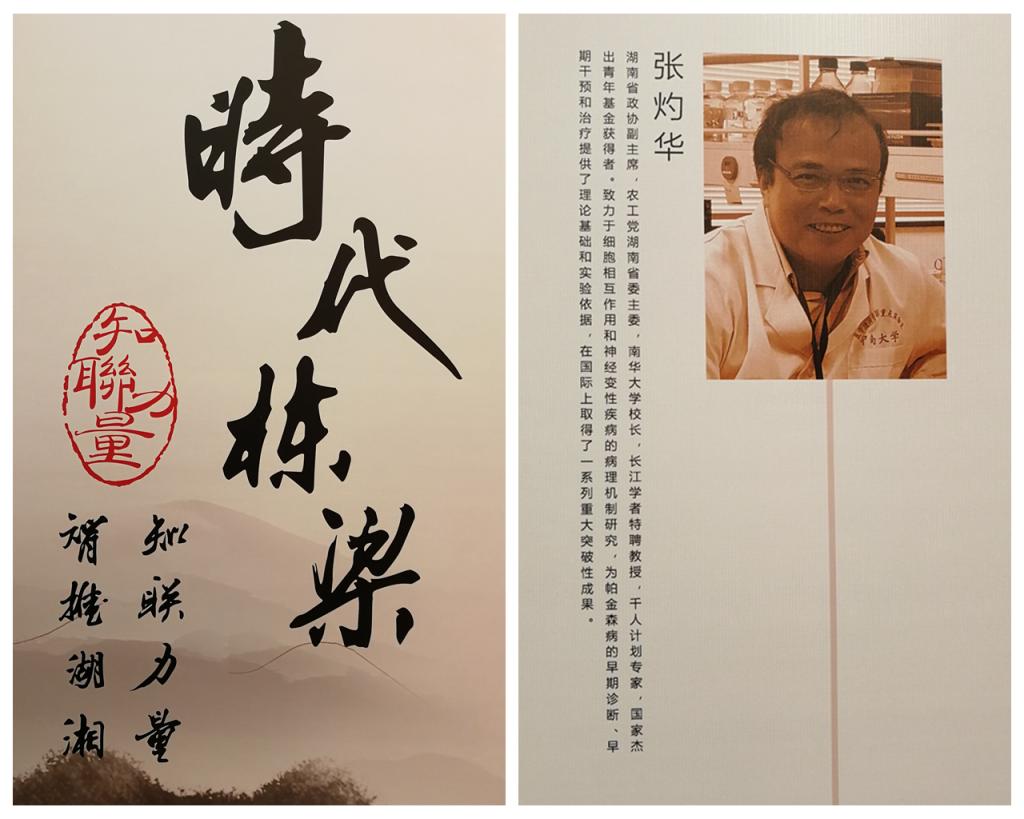 時代栋梁
知聯力量
知联力量
智推湖湘
张灼华
湖南省政协副主席，农工党湖南省委主委，南华大学校长，长江学者特聘教授，千人计划专家，国家杰
出青年基金获得者。致力于细胞相互作用和神经变性疾病的病理机制研究，为帕金森病的早期诊断、早
期干预和治疗提供了理论基础和实验依据，在国际上取得了一系列重大突破性成果。
中南大学